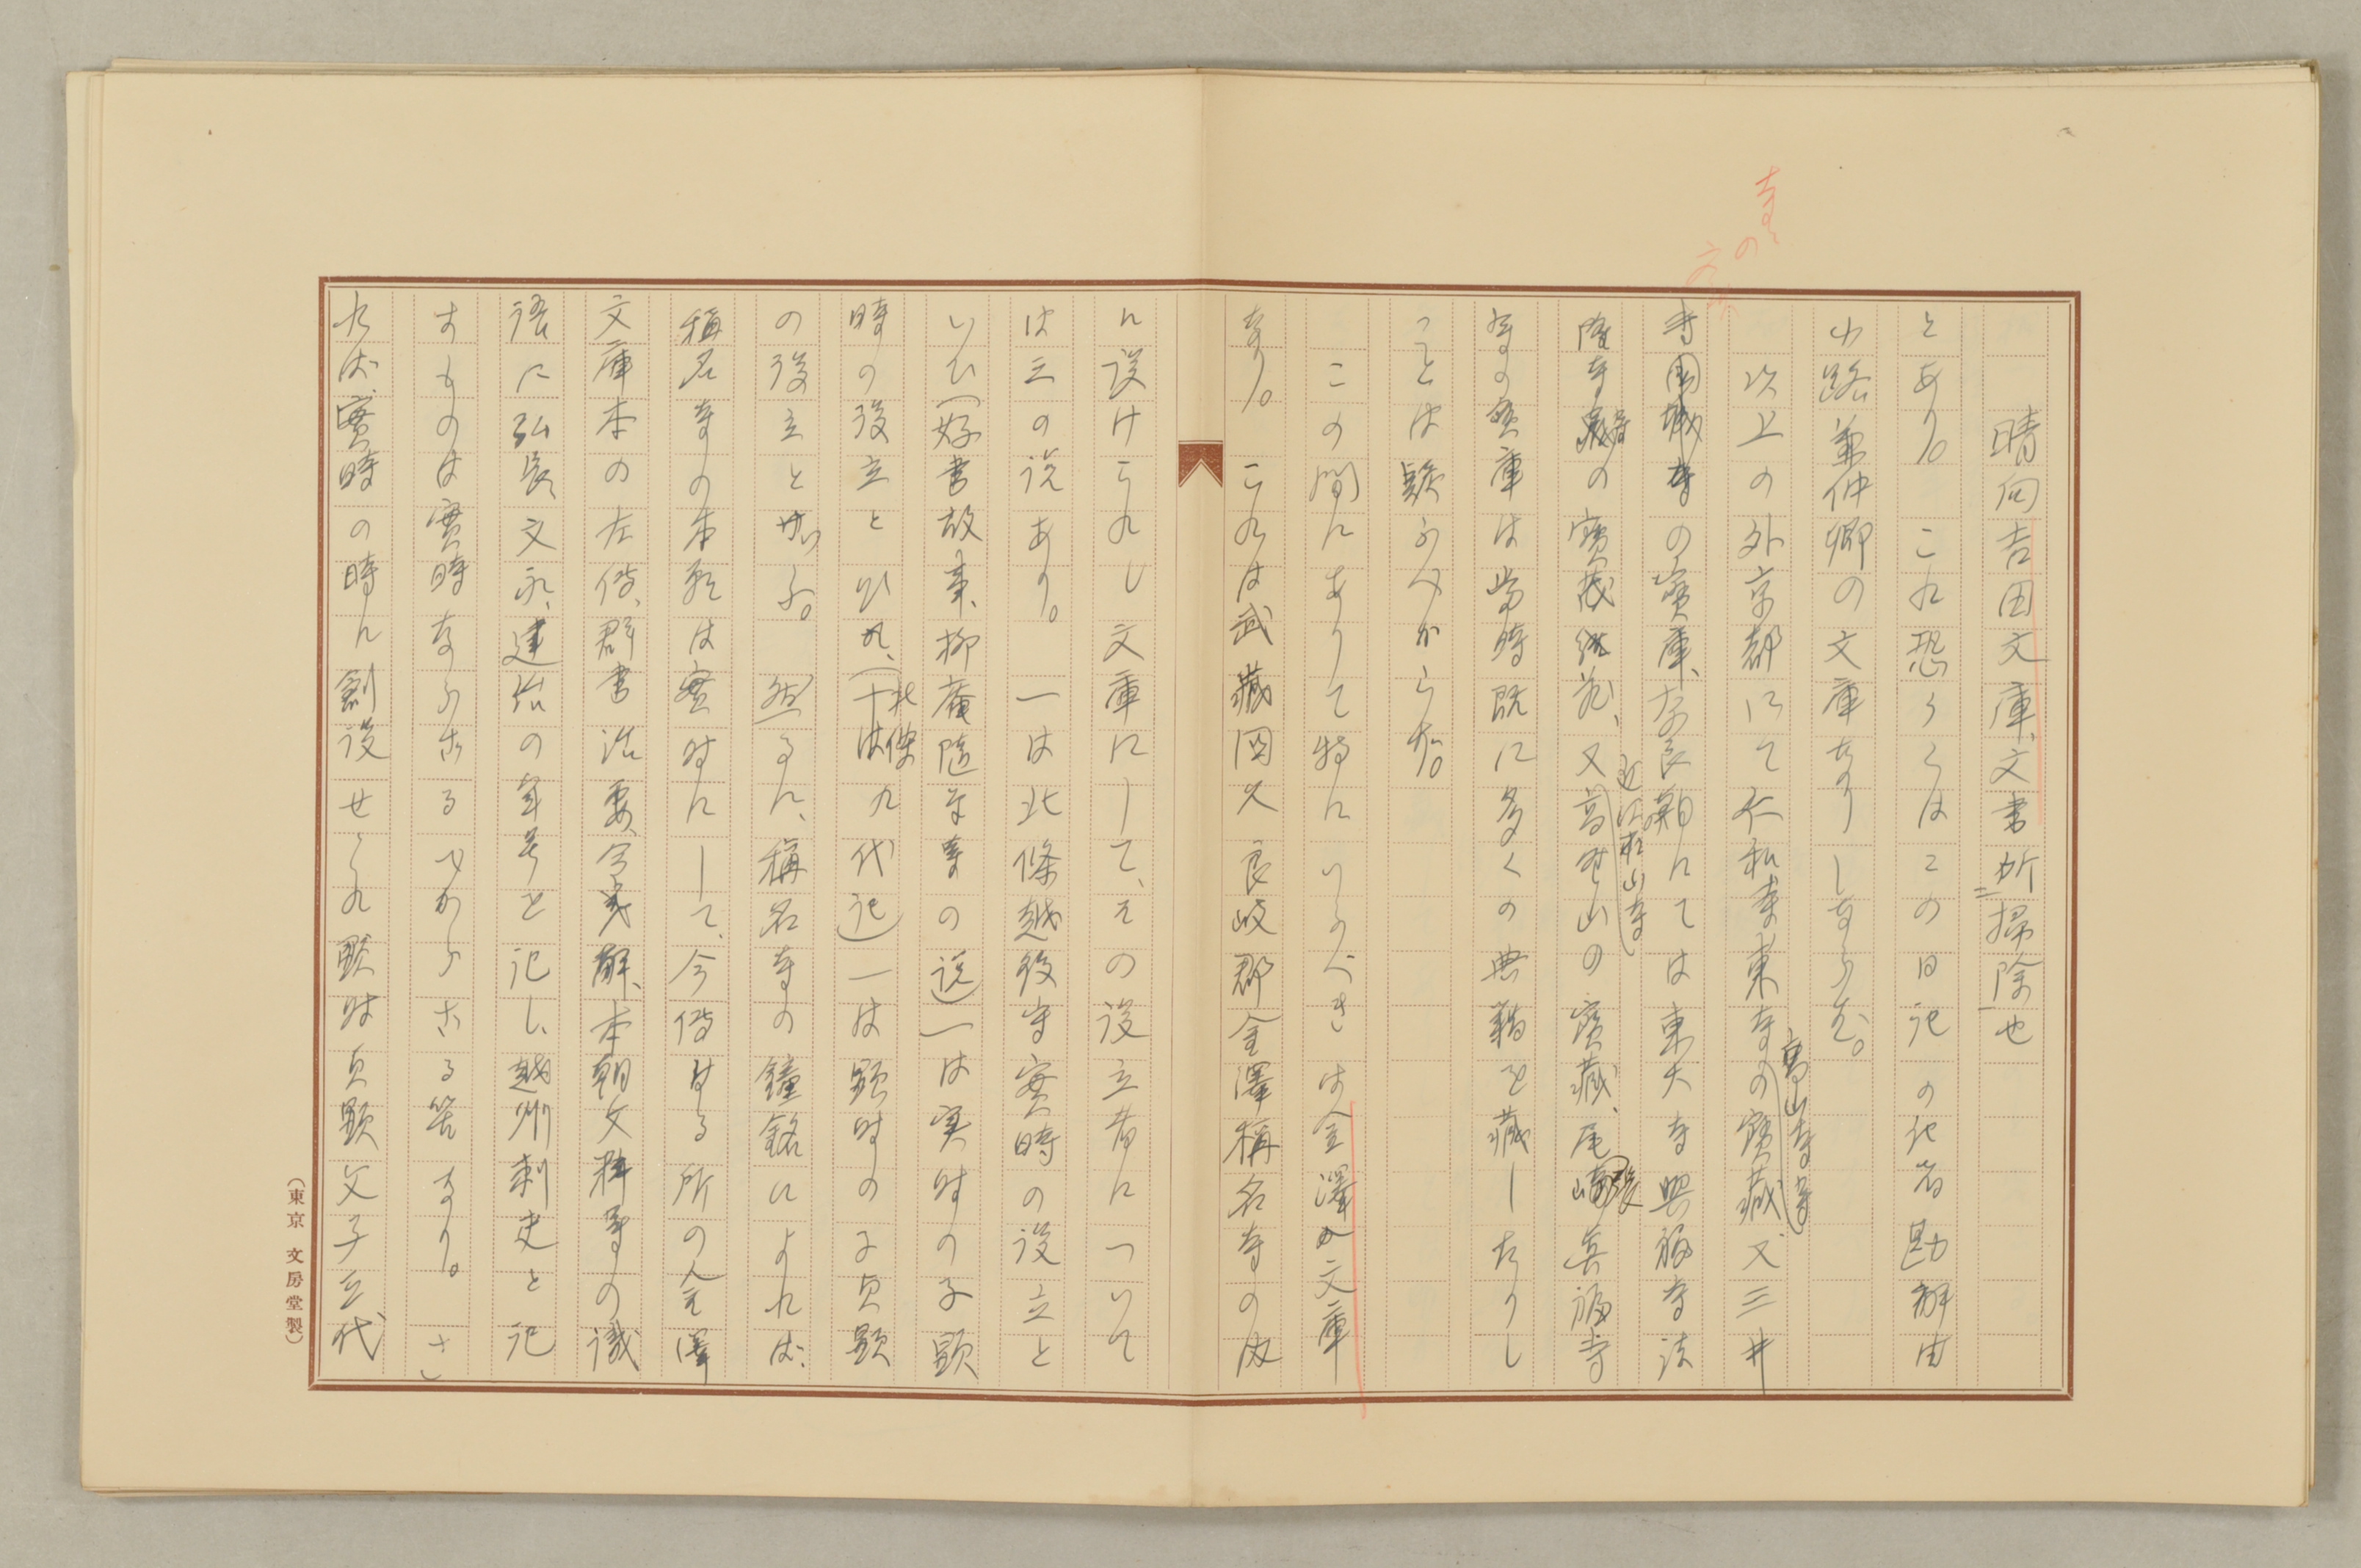 晴向吉田文庫、文書所掃除也
とあり。これ恐らくはこの日記の記者勘解由
小路兼仲卿の文庫なりしならむ。
以上の外京都にて仁和寺東寺高山寺等の寶藏又三井
寺の
寺園城寺の寶庫、奈良朝にては東大寺興福寺法
隆寺等の寶藏經藏、又近江石山寺高野山の寶藏、尾張眞福寺
等の寶庫は當時既に多くの典籍を藏したりし
ことは疑ふべからず。
この間にありて特にいふべきは金澤文庫
なり。これは武藏国久良岐郡金澤稱名寺の内
に設けられし文庫にして、その設立者について
は三の説あり。一は北條越後守實時の設立と
いひ(好書故事、柳庵随筆等の説)一は実時の子顕
時の設立といひ(北條九代記)一は顕時の子貞顕
の設立とせり。然るに、稱名寺の鐘銘によれば、
稱名寺の本願は實時にして、今傳する所の金澤
文庫本の左傳、群書治要、令義解、本朝文粋等の識
語に弘長、文永、建治の年号を記し、越州刺史と記
すものは實時ならざるべからざる筈なり。さ
れば、實時の時に創設せられ顕時貞顕父子三代
(東京 文房堂製)